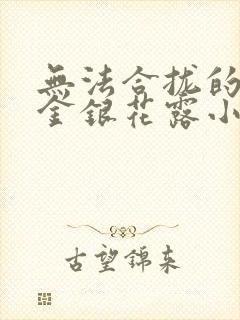 無法合拢的
金銀花露小
古望錦来